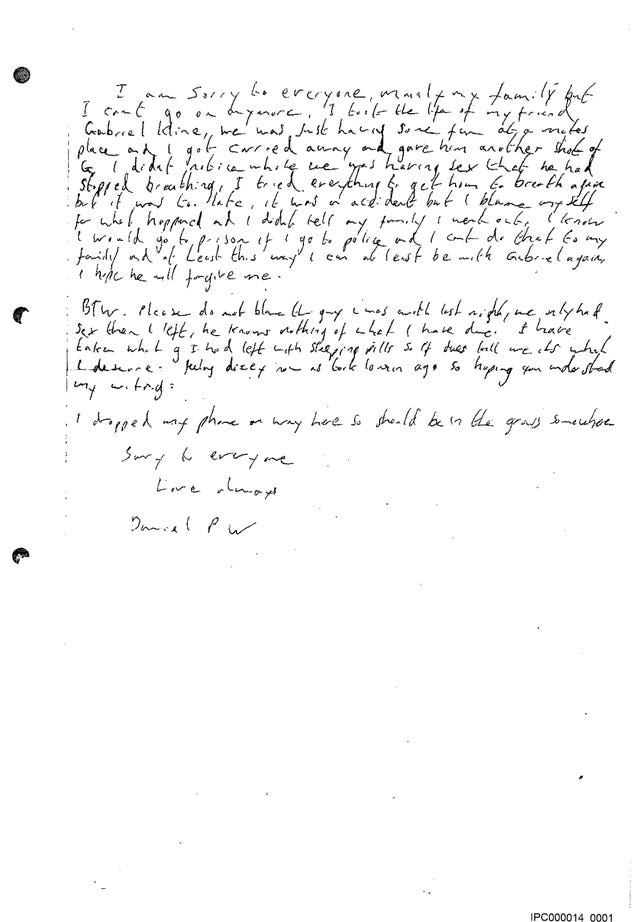 I am sorry to everyone, mainly my family but
I cant go on anymore, I took the life of my friend
Gabriel Kline, we was just having some fun at a mates
place and I got carried away and gave him another shot of
G. I didnt notice while we was having sex that he had
stopped breathing, I tried everything to get him to breath again
but it was to late, it was an accident but I blame myself
for what happened and I didnt tell my family I went out, I know
I would go to prison if I go to police and I cant do that to my
family and at least this way I can at least be with Gabriel again,
I hope he will forgive me.
BTW. Please do not blame the guy I was with last night, we only had
sex then I left, he knows nothing of what I have done. I have
taken what g I had left with sleeping pills so if it does kill me its what
I deserve. Feeling dizzy now as took 10min ago so hoping you understand
my writing.
I dropped my phone on way here so should be in the grass somewhere
Sorry to everyone
Love always
Daniel P W
IPC000014_0001